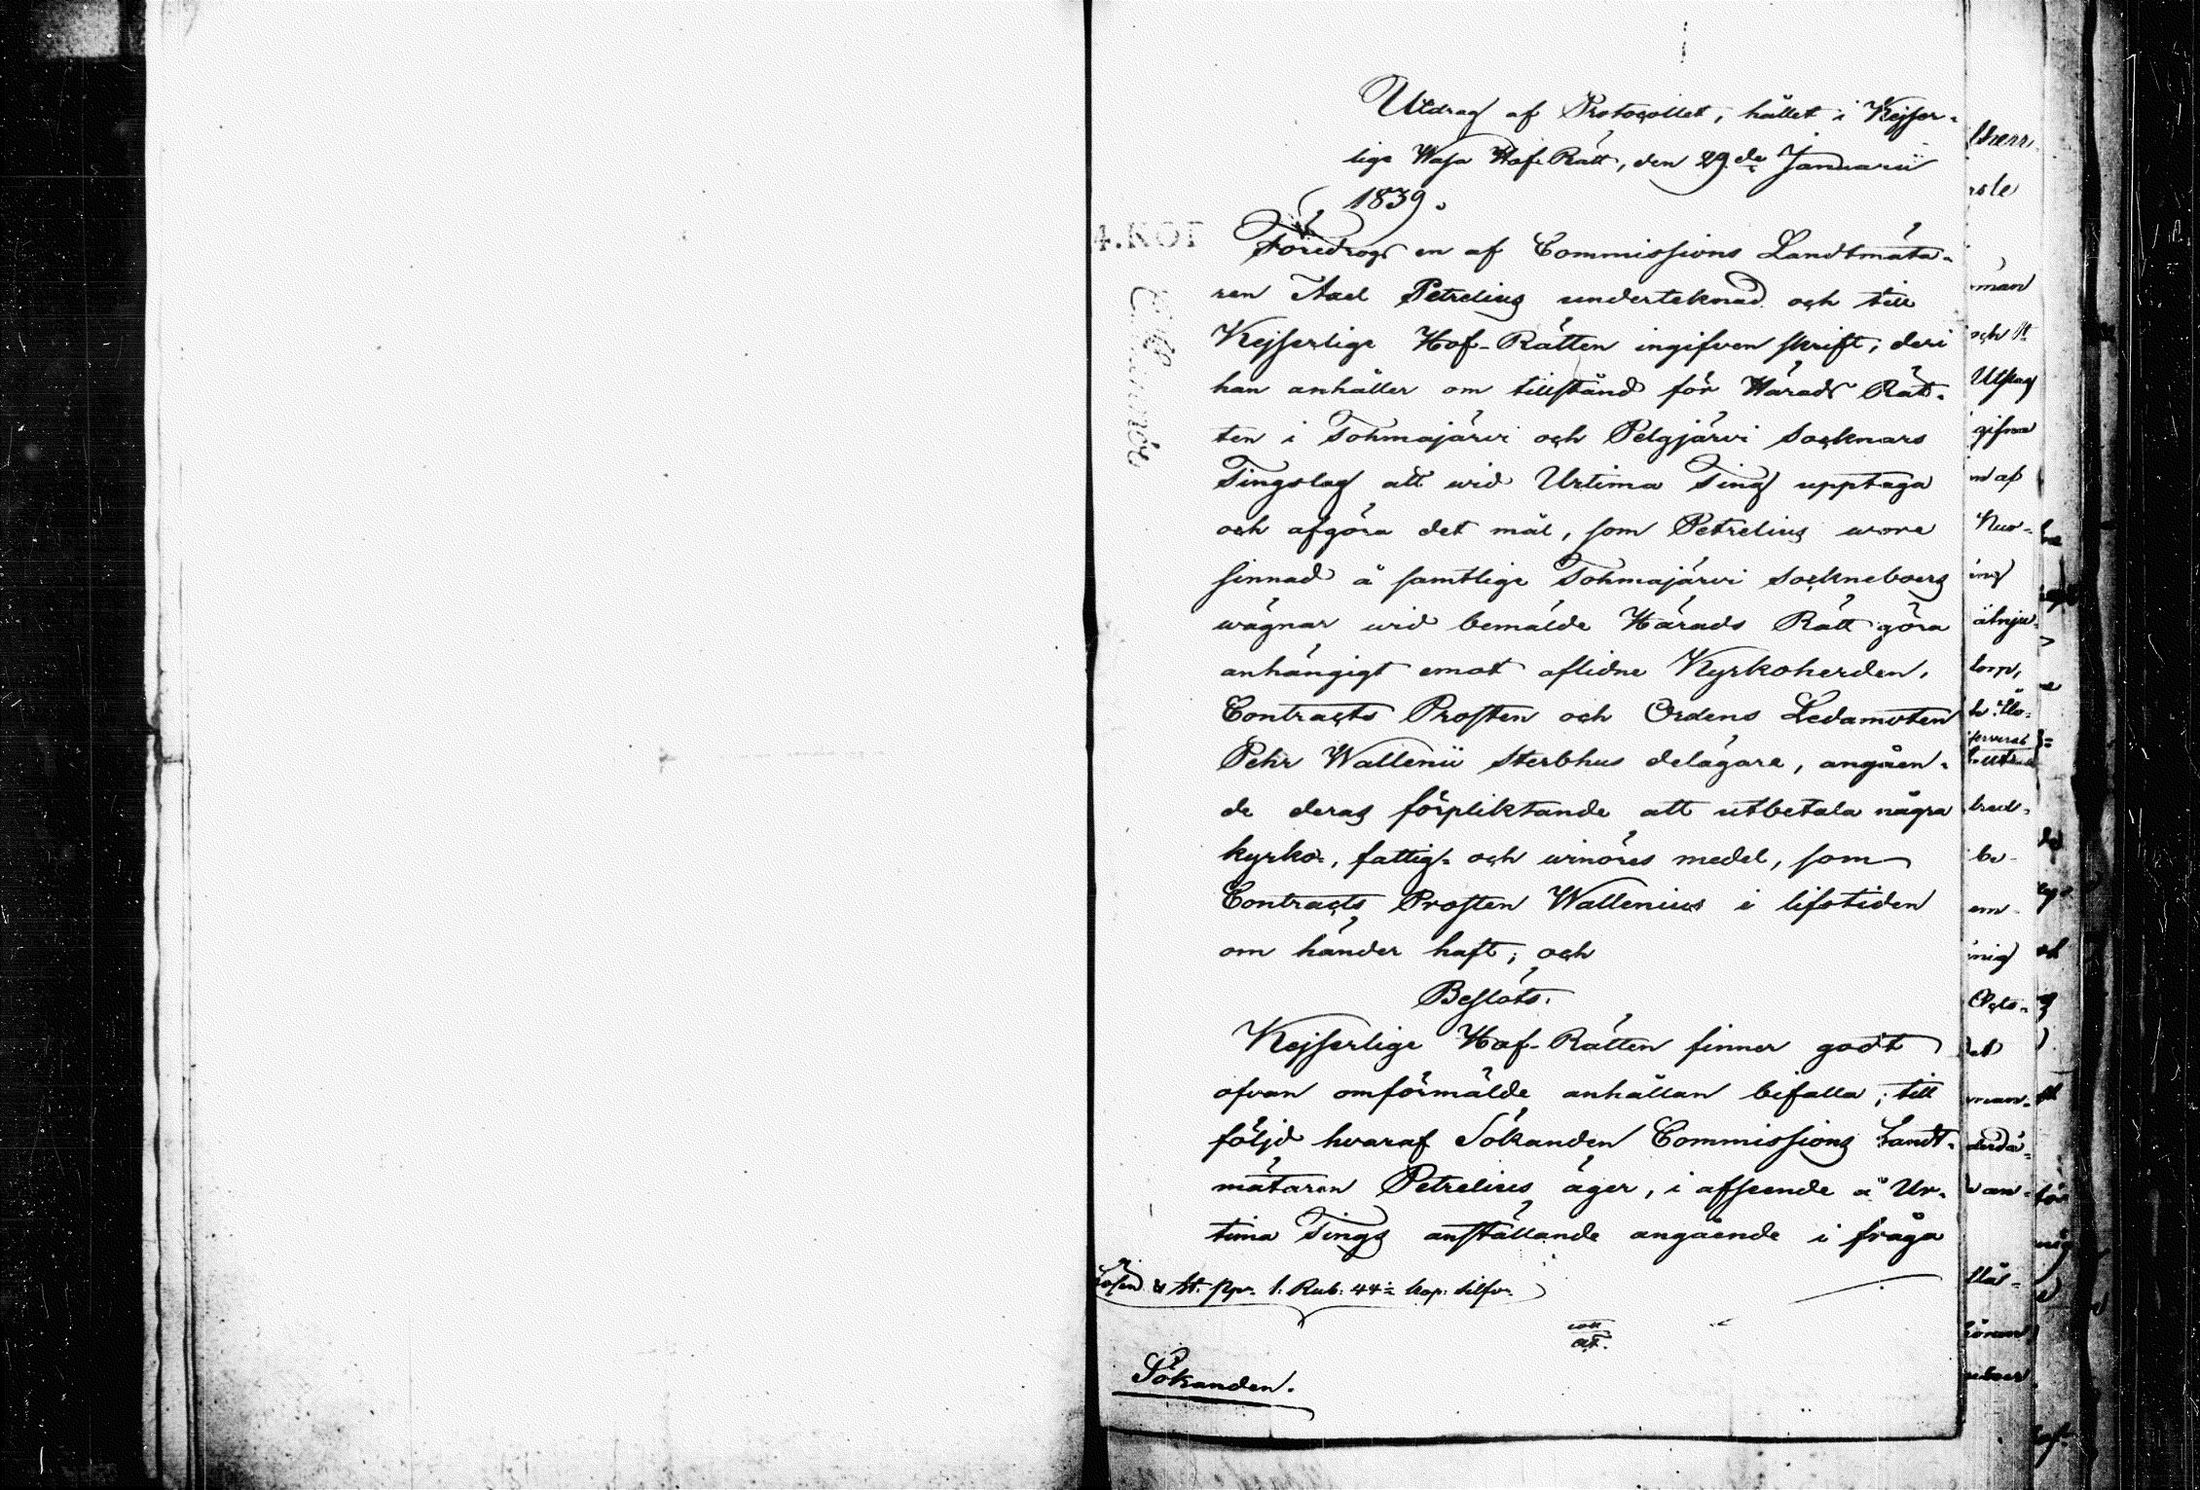 Utdrag af Protocollet, hållet i Kejser-
lige Wasa Hof-Rätt, den 29de Januarii
1839.
Föredrogs en af Commissions Landtmäta-
ren Axel Petrelius underteknad och till
Kejserlige Hof-Rätten ingifven skrift, deri
han anhåller om tillstånd för Härads Rät-
ten i Tohmajärvi och Pelgjärvi Socknars
Tingslag att wid Urtima Ting upptaga
och afgöra det mål, som Petrelius wore
sinnad å samtlige Tohmajärvi Sockneboers
wägnar wid bemälde Härads Rätt göra
anhängigt emot aflidne Kyrkoherden,
Contracts Prosten och Ordens Ledamoten
Pehr Wallenii Sterbhus delägare, angåen-
de deras förpliktande att utbetala några
kyrko-, fattig- och winöres medel, som
Contracts Prosten Wallenius i lifstiden
om händer haft; och
Beslöts:
Kejserlige Hof-Rätten finner godt
ofvan omförmälde anhållan bifalla; till
följd hvaraf Sökanden Commissions Landt-
mätaren Petrelius äger, i afseende å Ur-
tima Tings anställande angående i fråga
Lösen & St. Ppr. 1. Rub. 44 Kop. Silfv.
Sökanden.